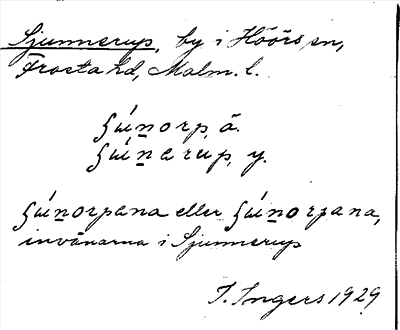 Sjunnerup, by i Höörs sn,
Frosta hd, Malm. l.
ʃún̲orp, ä.
ʃún̲arup, y.
ʃún̲orpana eller ʃún̲orpana,
invånarna i Sjunnerup
I. Ingers 1929